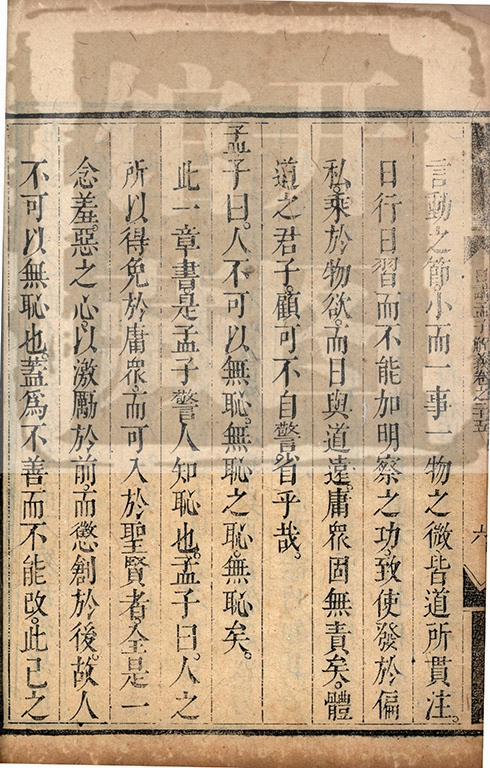 言動之節。小而一事一物之微皆道所貫注。
日行日習而不能加明察之功。致使發於偏
私。乘於物欲。而日與道遠。庸衆固無責矣。體
道之君子。顧可不自警省乎哉。
孟子曰。人不可以無恥。無恥之恥。無恥矣。
此一章書是孟子警人知恥也。孟子曰。人之
所以得免於庸衆。而可入於聖賢者。全是一
念羞惡之心。以激勵於前。而懲創於後。故人
不可以無恥也。蓋爲不善而不能改。此己之
日講孟子解義卷之二十五
六